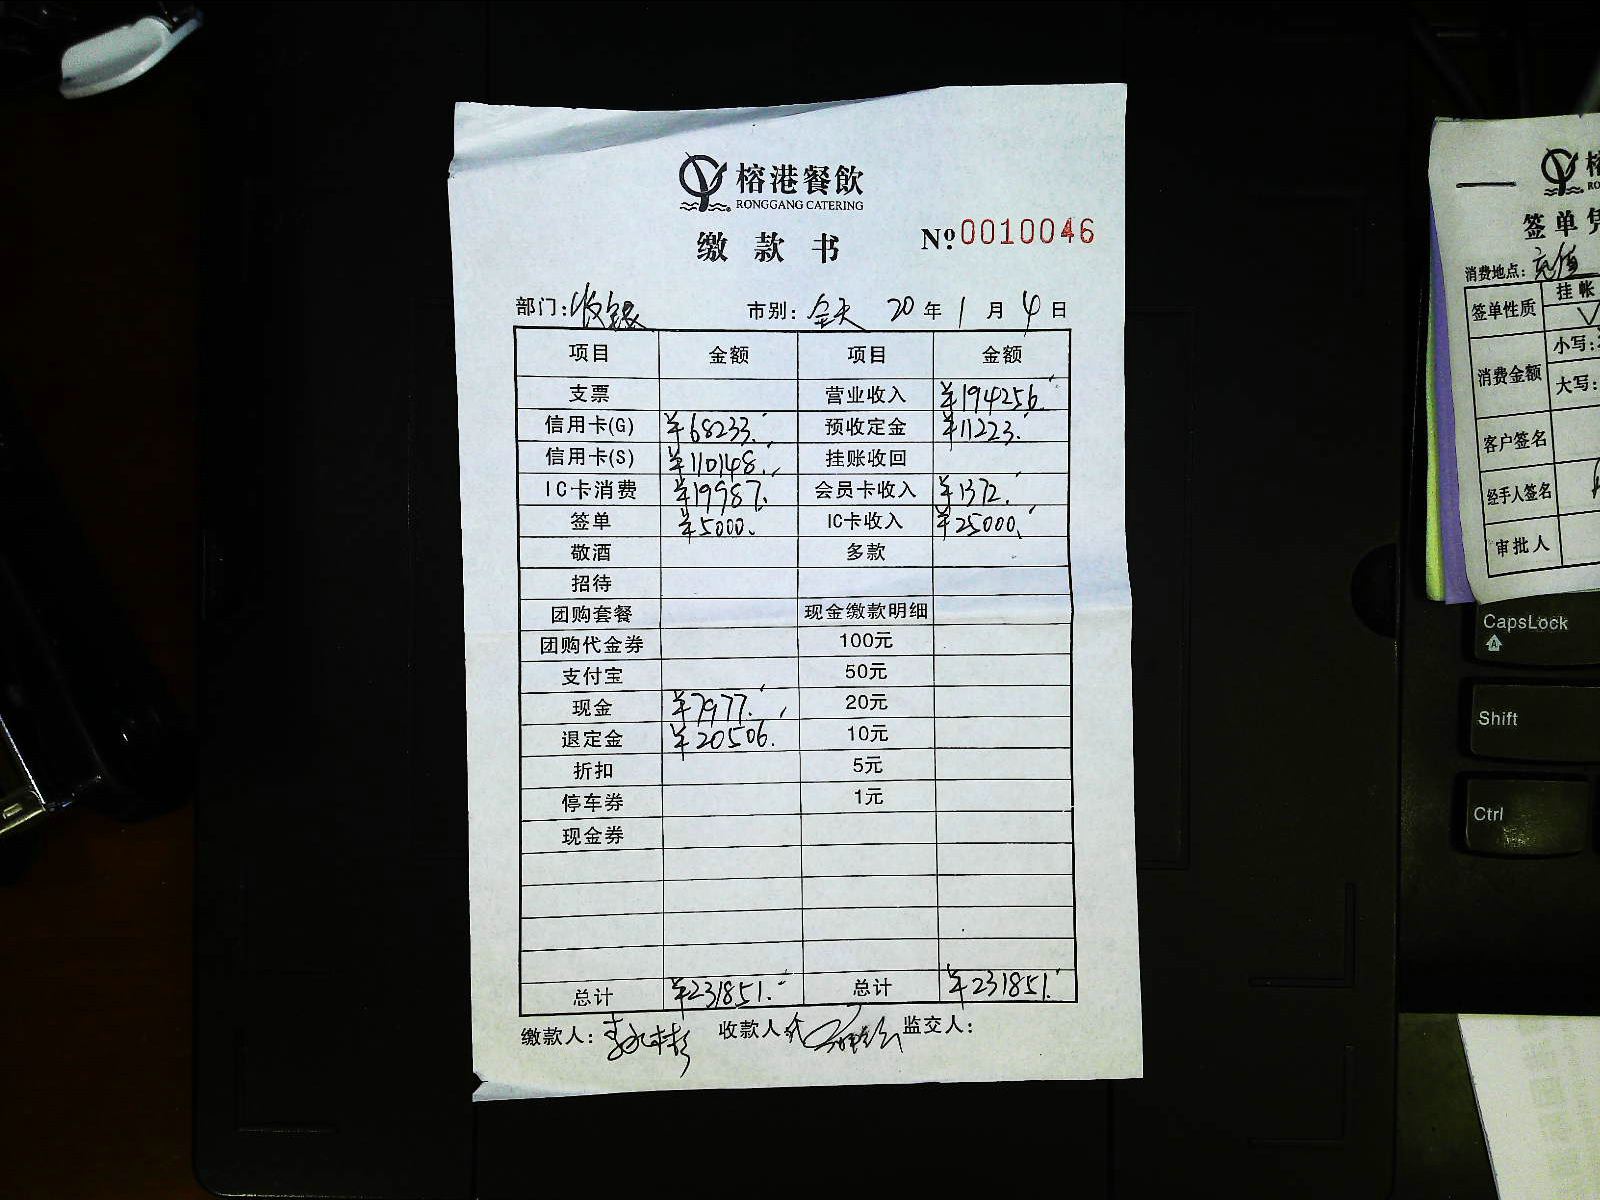 榕港餐飲
RONGGANG CATERING
缴款书 Nº 0010046
部门: 收银 市别: 全天 20年1月4日
项目 金额 项目 金额
支票 营业收入 ¥194256.
信用卡(G) ¥68233. 预收定金 ¥11223.
信用卡(S) ¥110148. 挂账收回
IC卡消费 ¥19987. 会员卡收入 ¥1372.
签单 ¥5000. IC卡收入 ¥25000.
敬酒 多款
招待
团购套餐 现金缴款明细
团购代金券 100元
支付宝 50元
现金 ¥7977. 20元
退定金 ¥20506. 10元
折扣 5元
停车券 1元
现金券
总计 ¥231851. 总计 ¥231851.
缴款人: 收款人 监交人:
榕
RO
签单凭
消费地点: 充值
签单性质 挂帐
消费金额 小写:
大写:
客户签名
经手人签名
审批人
CapsLock
Shift
Ctrl